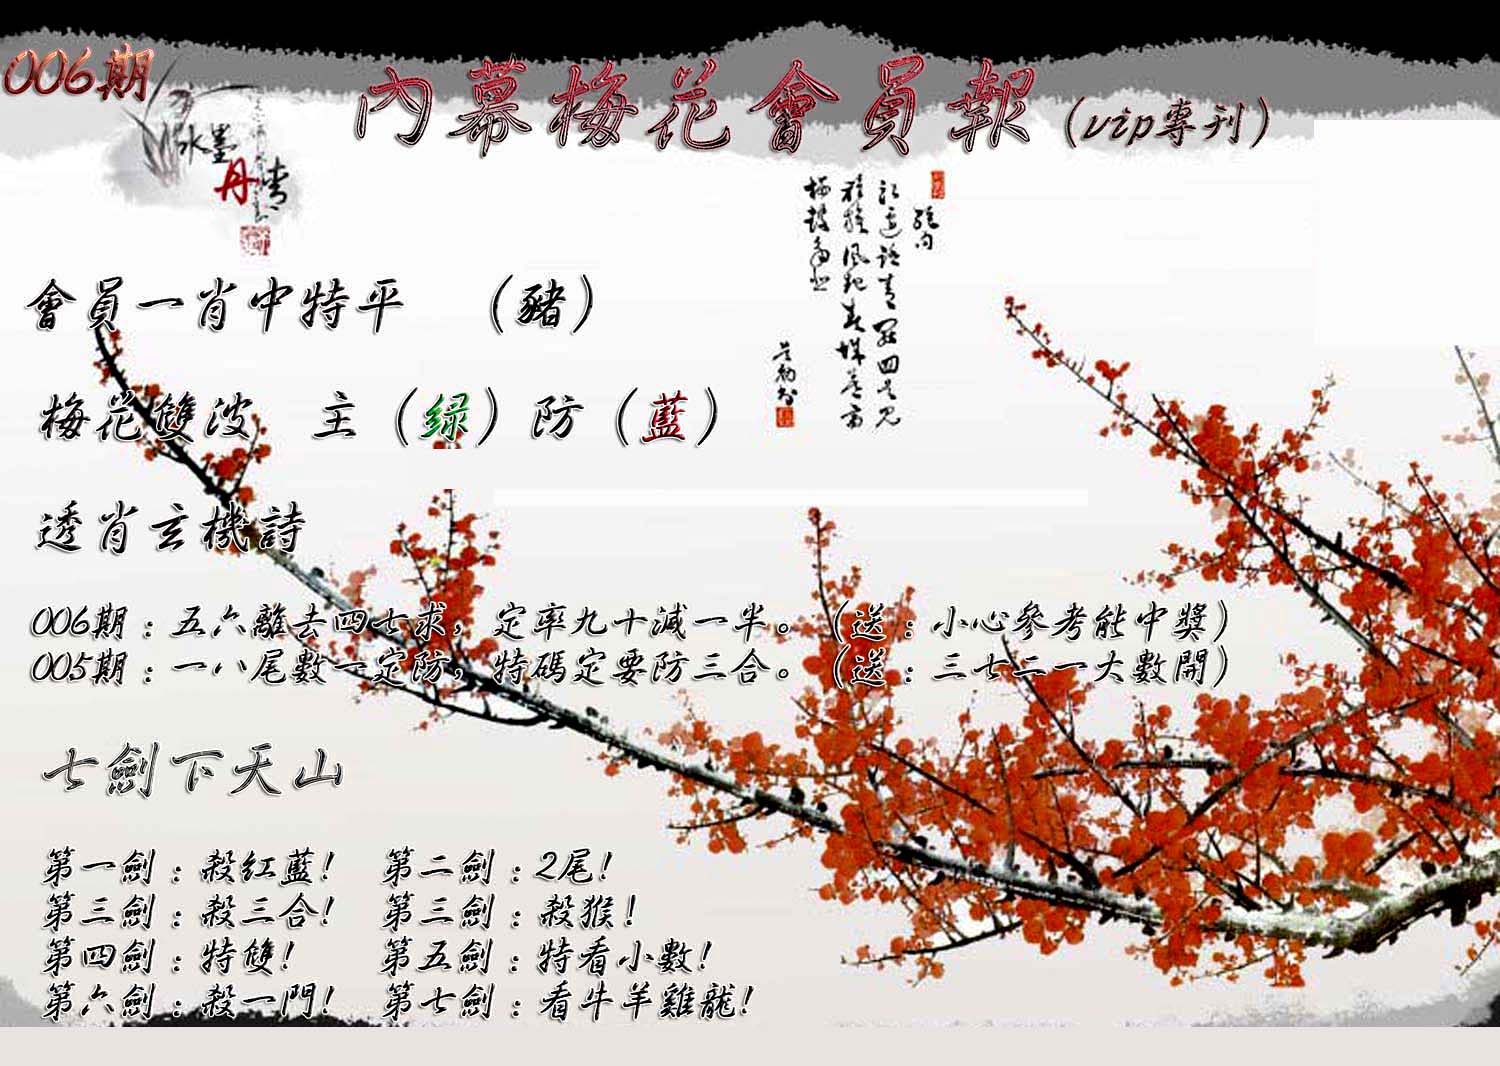 006期
內幕梅花會員報(vip專刊)
水墨
丹青
會員一肖中特平 (豬)
梅花雙波 主(绿)防(藍)
透肖玄機詩
006期:五六離去四七求,定率九十減一半。(送:小心參考能中獎)
005期:一八尾數一定防,特碼定要防三合。(送:三七二一大數開)
七劍下天山
第一劍:殺紅藍! 第二劍:2尾!
第三劍:殺三合! 第三劍:殺猴!
第四劍:特雙! 第五劍:特看小數!
第六劍:殺一門! 第七劍:看牛羊雞龍!